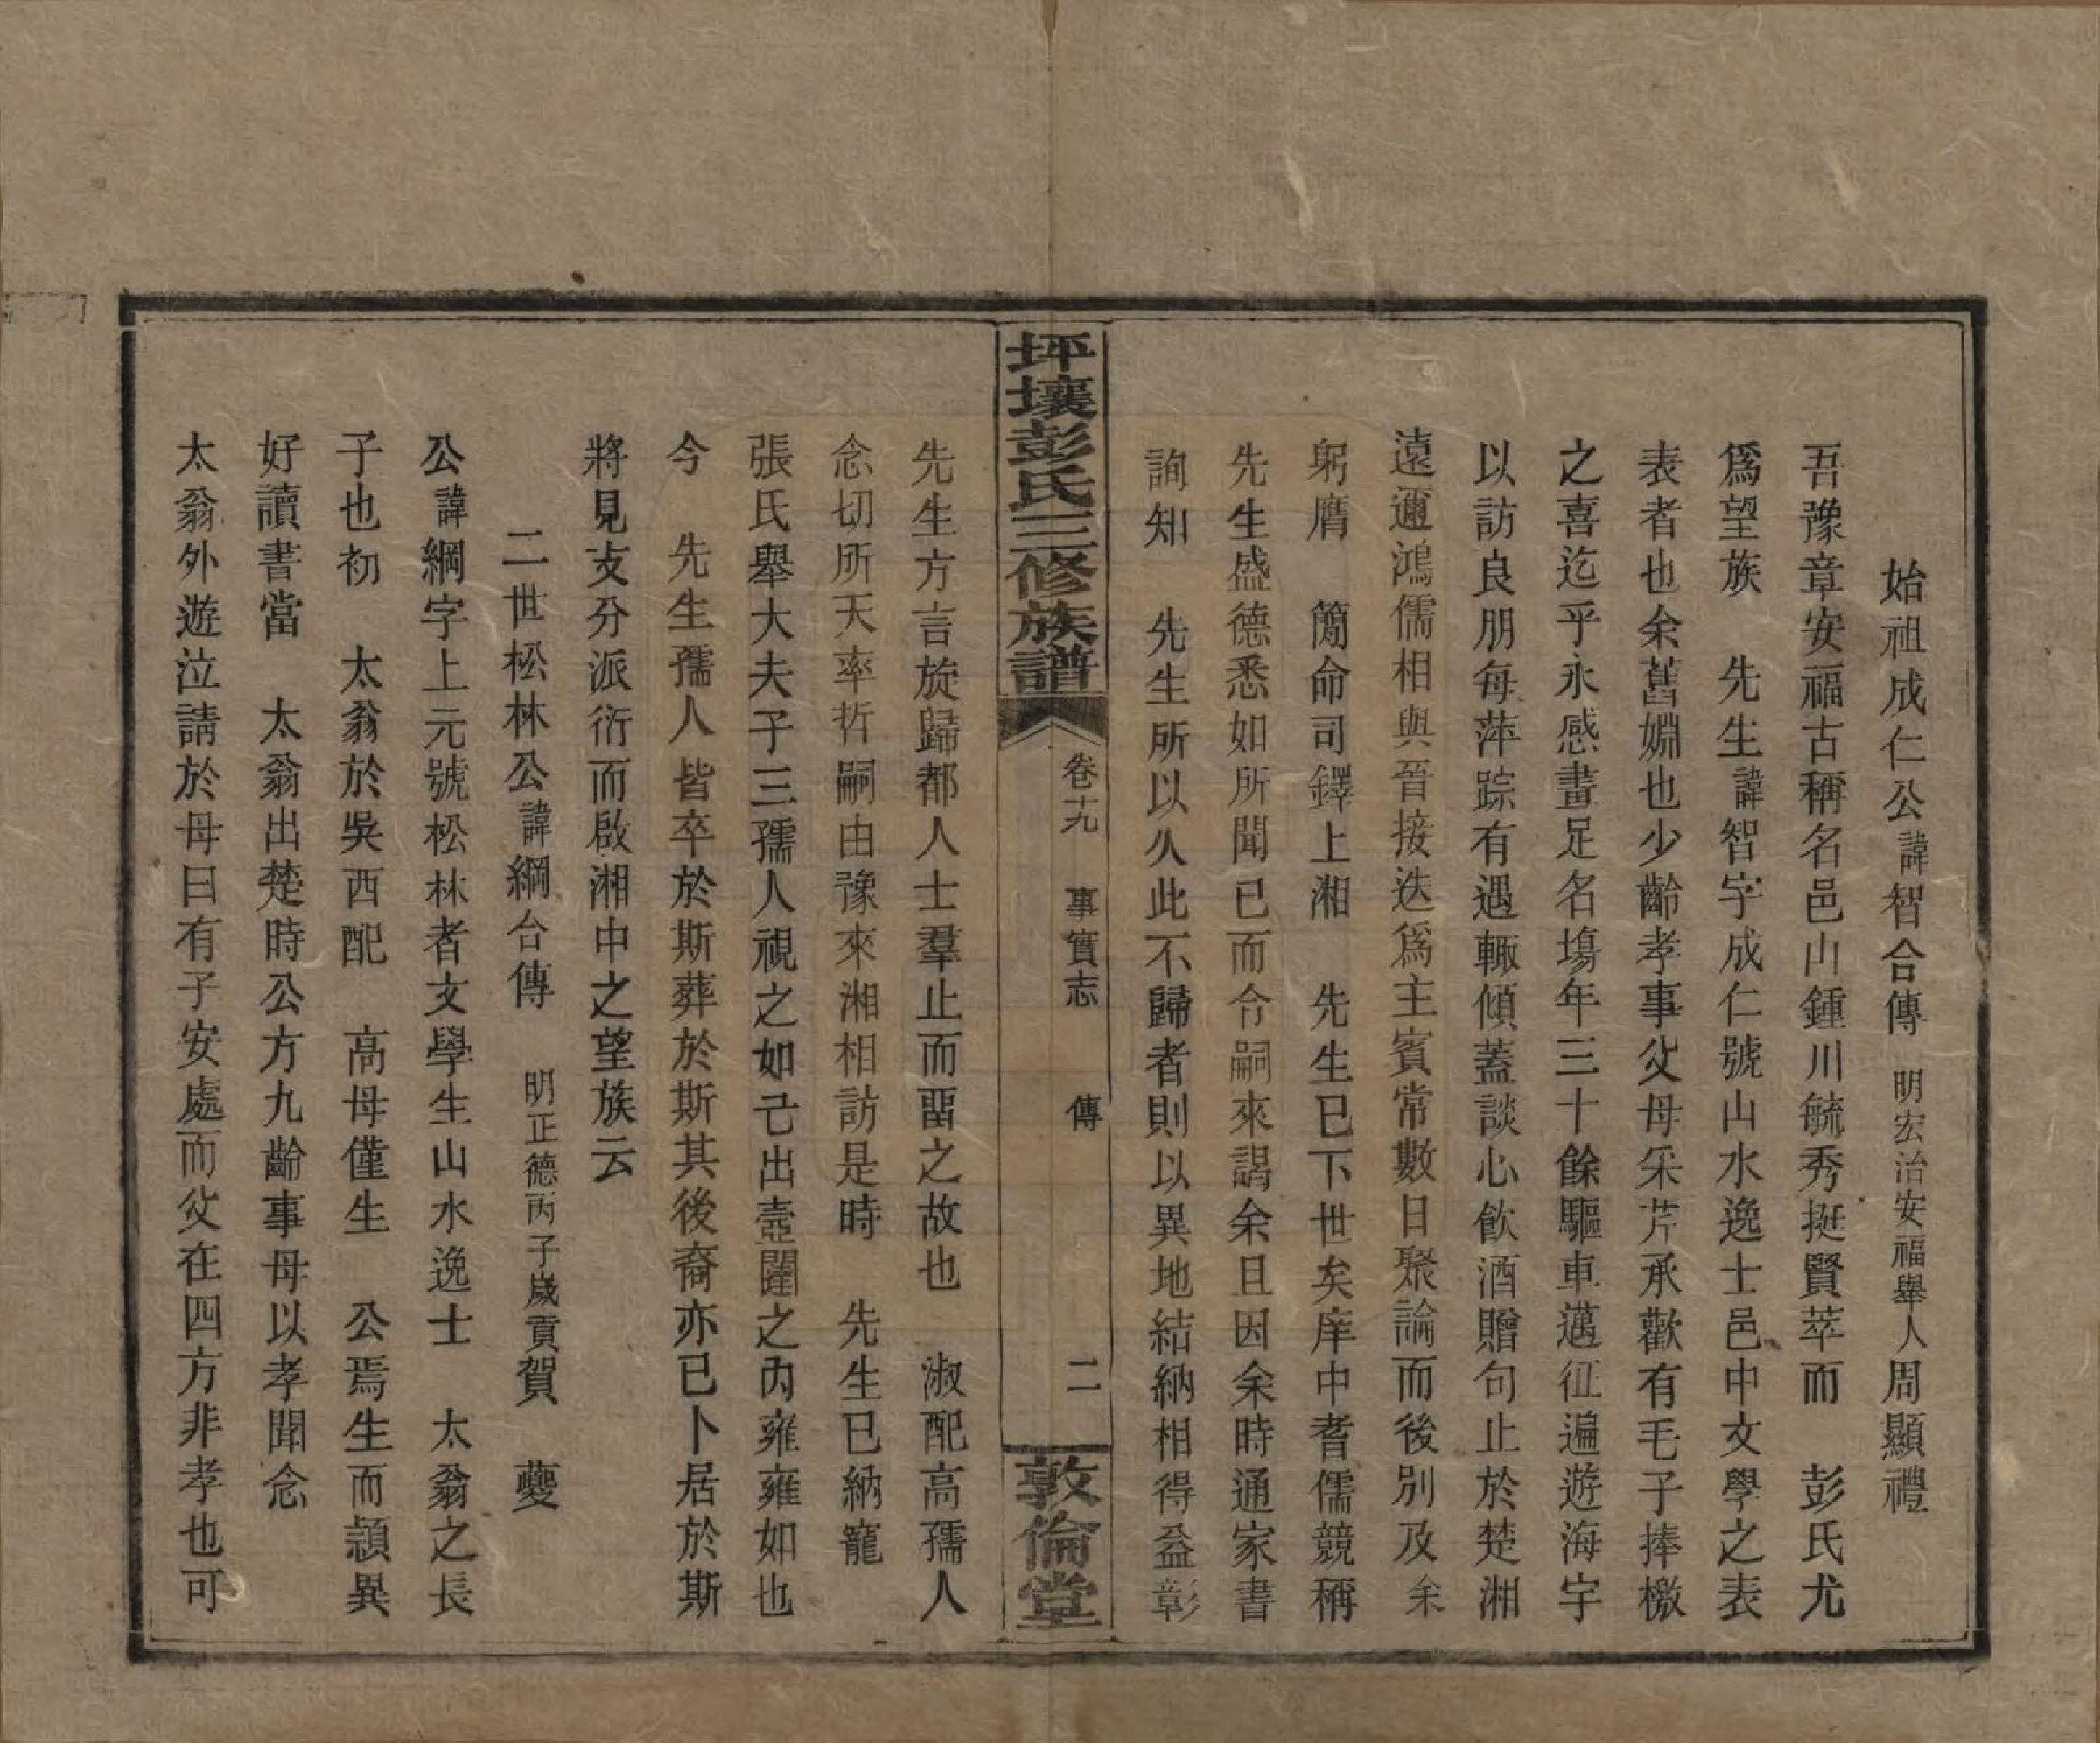 始祖成仁公諱智合傳　明宏治安福舉人周顯禮
吾豫章安福古稱名邑山鍾川毓秀挺賢萃而　彭氏尤
爲望族　先生諱智字成仁號山水逸士邑中文學之表
表者也余舊姻也少齡孝事父母采芹承歡有毛子捧檄
之喜迄乎永感畫足名場年三十餘驅車邁征遍遊海宇
以訪良朋每萍踪有遇輒傾蓋談心飲酒贈句止於楚湘
遠邇鴻儒相與晉接迭爲主賓常數日聚論而後別及余
躬膺　簡命司鐸上湘　先生已下世矣庠中耆儒競稱
先生盛德悉如所聞已而令嗣來謁余且因余時通家書
詢知　先生所以久此不歸者則以異地結納相得益彰
坪壤彭氏三修族譜
卷十九　事實志　傳　二
敦倫堂
先生方言旋歸都人士羣止而畱之故也　淑配高孺人
念切所天率哲嗣由豫來湘相訪是時　先生已納寵
張氏舉大夫子三孺人視之如己出壼闈之內雍雍如也
今　先生孺人皆卒於斯葬於斯其後裔亦已卜居於斯
將見支分派衍而啟湘中之望族云
二世松林公諱綱合傳　明正德丙子歲貢賀　夔
公諱綱字上元號松林者文學生山水逸士　太翁之長
子也初　太翁於吳西配　高母僅生　公焉生而穎異
好讀書當　太翁出楚時公方九齡事母以孝聞念
太翁外遊泣請於母曰有子安處而父在四方非孝也可